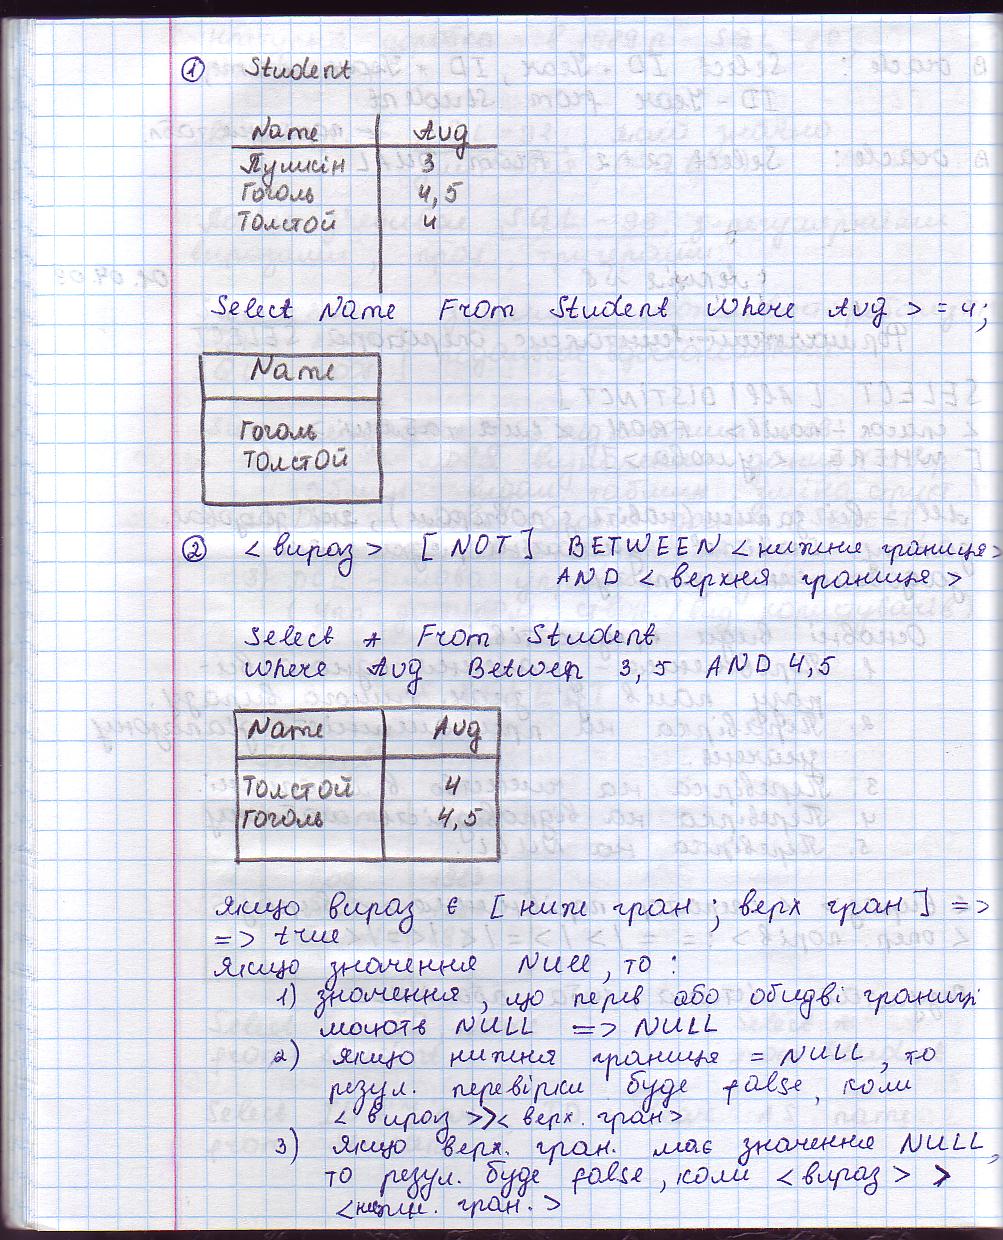 ① Student
Name Avg
Пушкін 3
Гоголь 4,5
Толстой 4
Select Name From Student Where Avg >= 4;
Name
Гоголь
Толстой
② <вираз> [NOT] BETWEEN <нижня границя>
AND <верхня границя>
Select * From Student
Where Avg Between 3,5 AND 4,5
Name Avg
Толстой 4
Гоголь 4,5
Якщо вираз є [ниж гран; верх гран] =>
=> true
Якщо значення Null, то:
1) значення, що перев або обидві границі
мають NULL => NULL
2) якщо нижня границя = NULL, то
резул. перевірки буде false, коли
<вираз>><верх. гран>
3) якщо верх. гран. має значення NULL,
то резул. буде false, коли <вираз> >
<нижн. гран.>